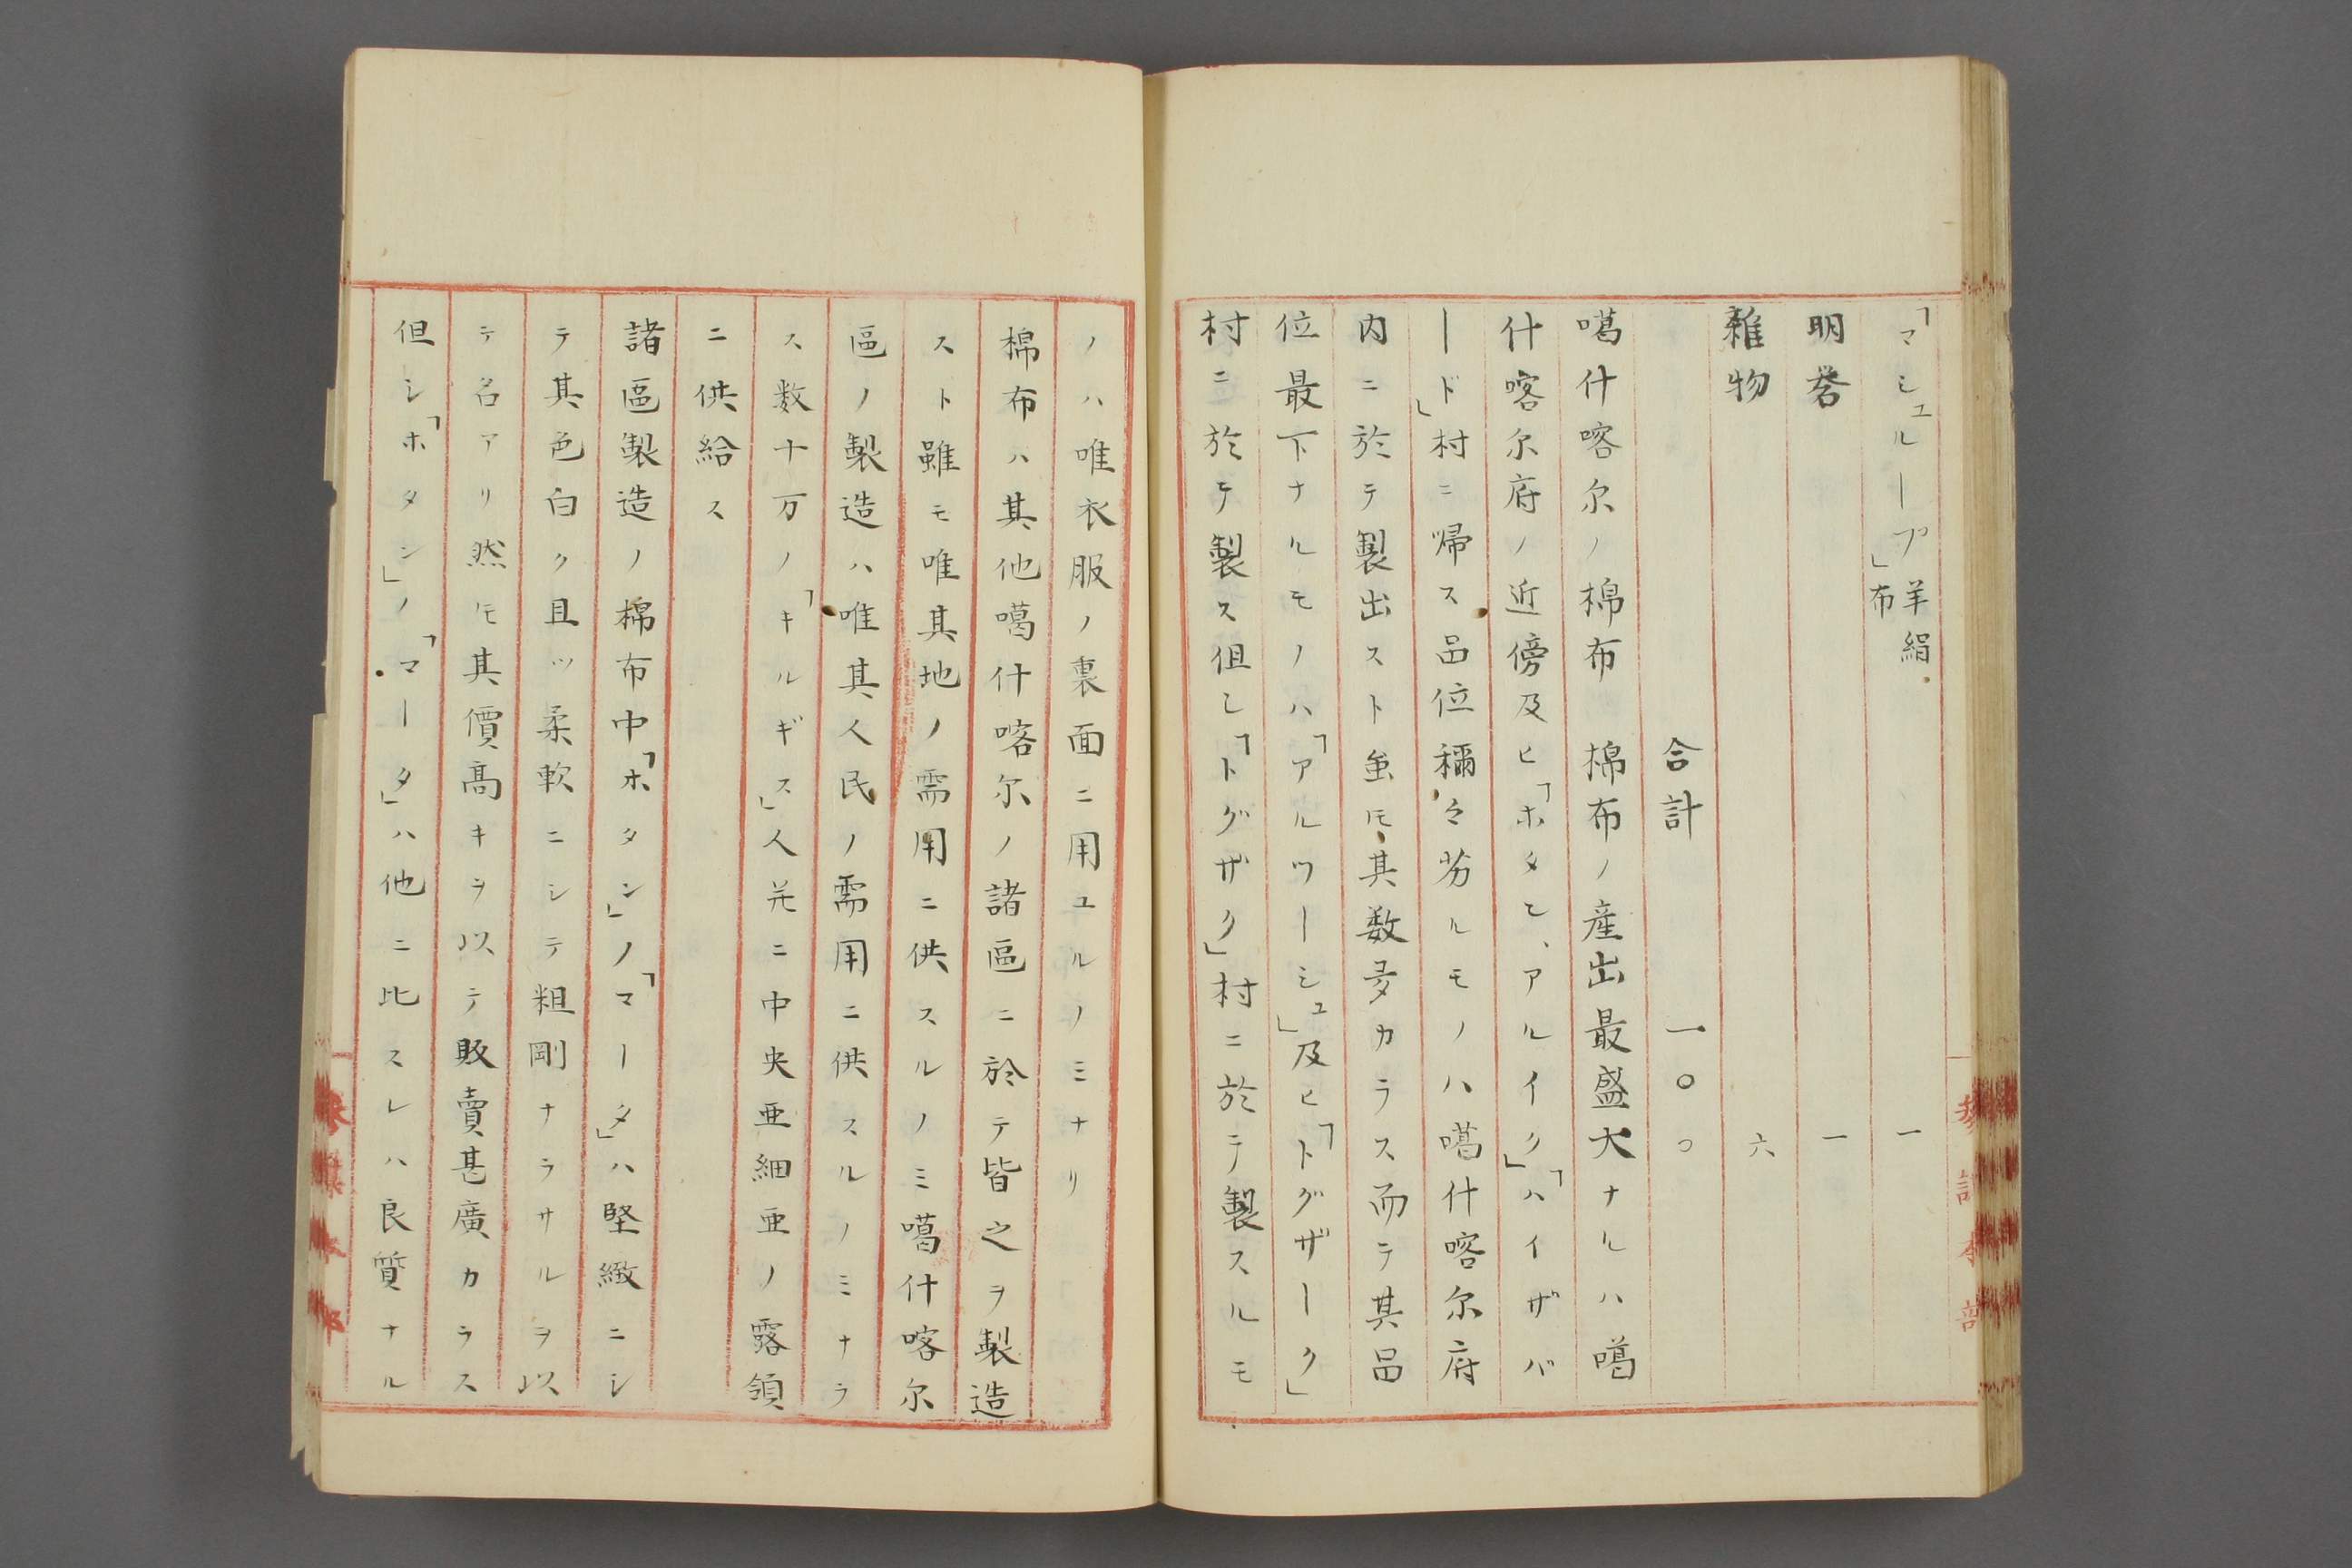 「マシュループ」羊絹布 一
明礬 一
雜物 六
合計 一〇〇
噶什喀尔ノ棉布 棉布ノ産出最盛大ナルハ噶
什喀尔府ノ近傍及ヒ「ホタヒ、アルイク」「ハイザバ
ード」村ニ帰ス品位稱々劣ルモノハ噶什喀尔府
内ニ於テ製出スト虽𪜈其数多カラス而テ其品
位最下ナルモノハ「アルワーシュ」及ヒ「トグザーク」
村ニ於テ製ス但シ「トグザク」村ニ於テ製スルモ
ノハ唯衣服ノ裏面ニ用ユルノミナリ
棉布ハ其他噶什喀尔ノ諸區ニ於テ皆之ヲ製造
スト雖モ唯其地ノ需用ニ供スルノミ噶什喀尔
區ノ製造ハ唯其人民ノ需用ニ供スルノミナラ
ス数十万ノ「キルギス」人并ニ中央亜細亜ノ露領
ニ供給ス
諸區製造ノ棉布中「ホタン」ノ「マータ」ハ堅緻ニシ
テ其色白ク且ツ柔軟ニシテ粗剛ナラサルヲ以
テ名アリ然𪜈其價高キヲ以テ販賣甚廣カラス
但シ「ホタン」ノ「マータ」ハ他ニ比スレハ良質ナル